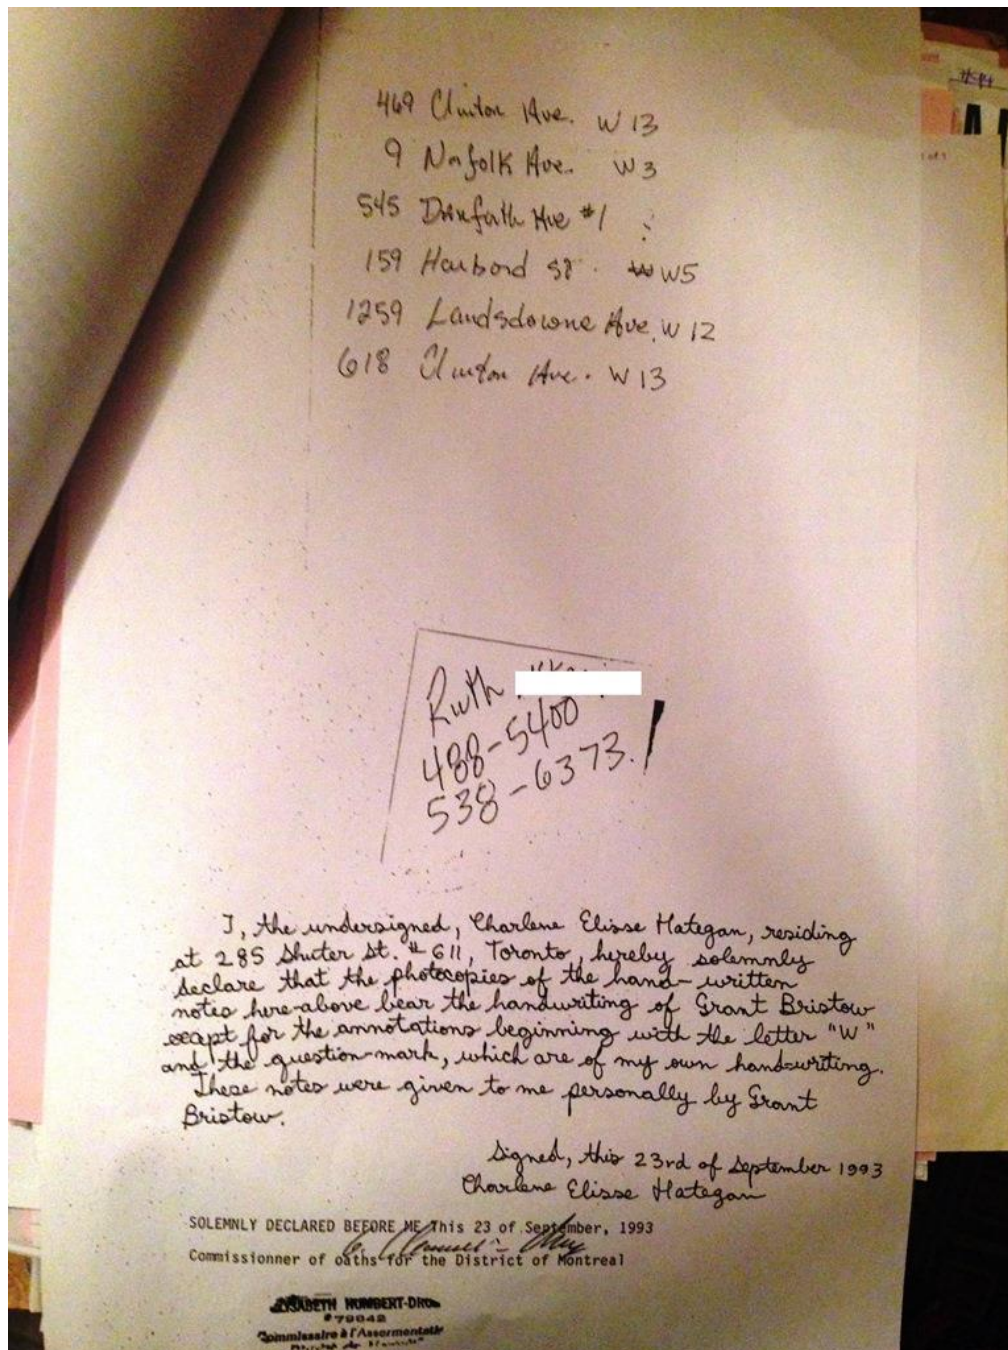 469 Clinton Ave. W 13
9 Norfolk Ave. W 3
545 Danforth Ave #1 ?
159 Harbord St. W5
1259 Landsdowne Ave. W 12
618 Clinton Ave. W 13
Ruth
488-5400
538-6373.
I, the undersigned, Charlene Elisse Hategan, residing
at 285 Shuter St. #611, Toronto, hereby solemnly
declare that the photocopies of the hand-written
notes here-above bear the handwriting of Grant Bristow
except for the annotations beginning with the letter "W"
and the question-mark, which are of my own hand-writing.
These notes were given to me personally by Grant
Bristow.
Signed, this 23rd of September 1993
Charlene Elisse Hategan
SOLEMNLY DECLARED BEFORE ME This 23 of September, 1993
Commissionner of oaths for the District of Montreal
ELISABETH HUMBERT-DROZ
#79042
Commissaire à l'Assermentation
District de